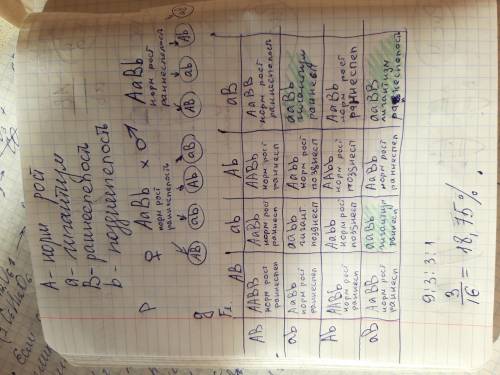 A - норм рост
a - гигантизм
B - раннеспелость
b - позднеспелость
P ♀ AaBb × ♂ AaBb
норм рост норм рост
раннеспелость раннеспелость
g AB ab Ab aB AB ab Ab aB
F₁ AB ab Ab aB
AB AABB AaBb AABb AaBB
норм рост норм рост норм рост норм рост
раннеспел раннесп раннесп раннеспелость
ab AaBb aabb Aabb aaBb
норм рост гигант норм рост гигантизм
раннеспел позднесп позднесп раннесп
Ab AABb Aabb AAbb AaBb
норм рост норм рост норм рост норм рост
раннесп позднесп позднесп раннеспел
aB AaBB aaBb AaBb aaBB
норм рост гигантизм норм рост гигантизм
раннеспел раннесп раннеспел раннеспелость
9:3:3:1
3/16 = 18,75%